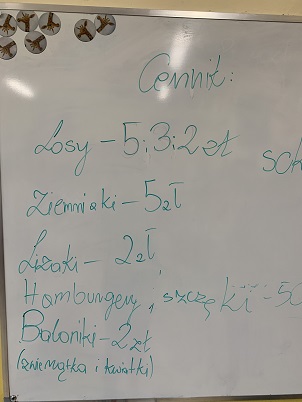 Cennik:
Losy - 5;3;2 zł
Ziemniaki - 5zł
Lizaki - 2zł
Hamburgery, szczęki - 50
Baloniki - 2 zł
(zwierzątka i kwiatki)